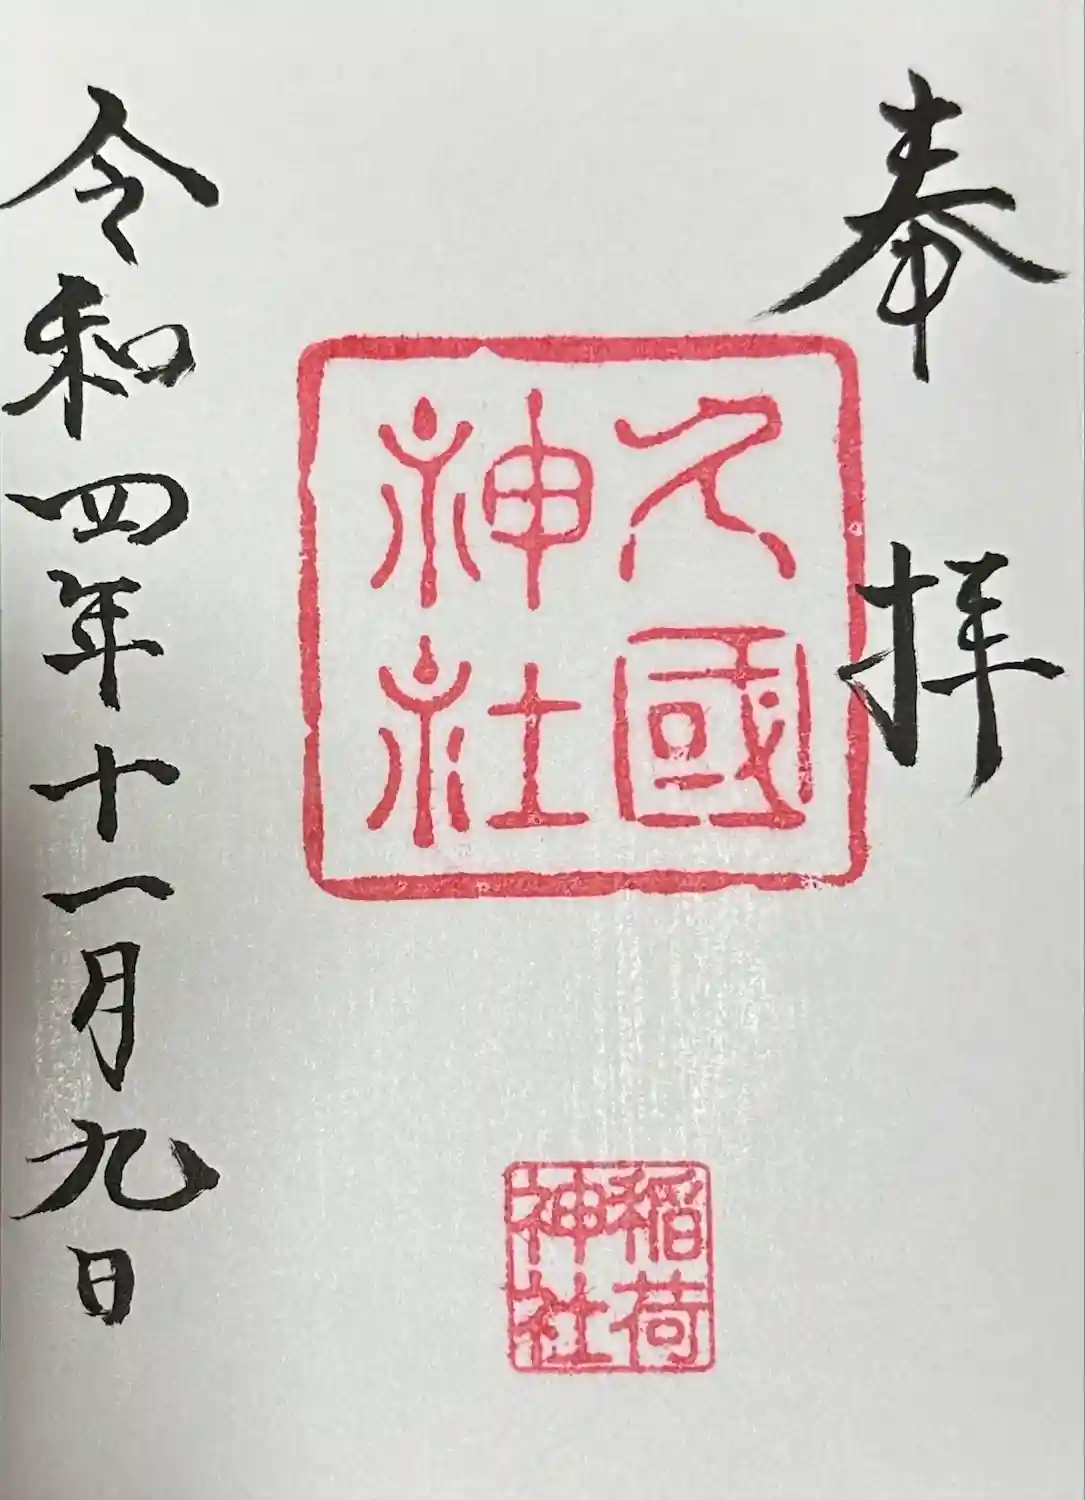 奉拝
久國
神社
稲荷
神社
令和四年十一月九日